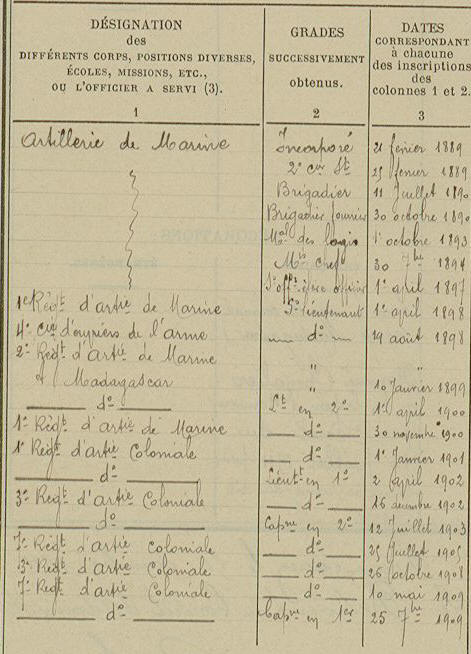 DÉSIGNATION
des
DIFFÉRENTS CORPS, POSITIONS DIVERSES,
ÉCOLES, MISSIONS, ETC.,
OU L'OFFICIER A SERVI (3).
1
GRADES
SUCCESSIVEMENT
obtenus.
2
DATES
CORRESPONDANT
à chacune
des inscriptions
des
colonnes 1 et 2.
3
Artillerie de Marine Incorporé 21 fevrier 1889
2e cer St 25 fevrier 1889
Brigadier 11 Juillet 1890
Brigadier fourrier 30 octobre 1890
Mal des logis 1er octobre 1893
Mis chef 30 7bre 1894
S. off élève officier 1er april 1897
1er Régt d'artie de Marine S. lieutenant 1er april 1898
4e Cie d'ouvriers de l'arme do 19 août 1898
2e Régt d'artie de Marine " "
et Madagascar " 10 Janvier 1899
do Lt en 2e 1er april 1900
1er Régt d'artie de Marine do 30 novembre 1900
1er Régt d'artie Coloniale do 1er Janvier 1901
do Lieutt en 1er 2 april 1902
3e Régt d'artie Coloniale do 16 décembre 1902
do Capne en 2e 12 Juillet 1903
7e Régt d'artie coloniale do 25 Juillet 1905
Régt d'artie coloniale do 26 octobre 1908
7e Régt d'artie Coloniale do 10 mai 1909
do Capne en 1er 25 7bre 1909